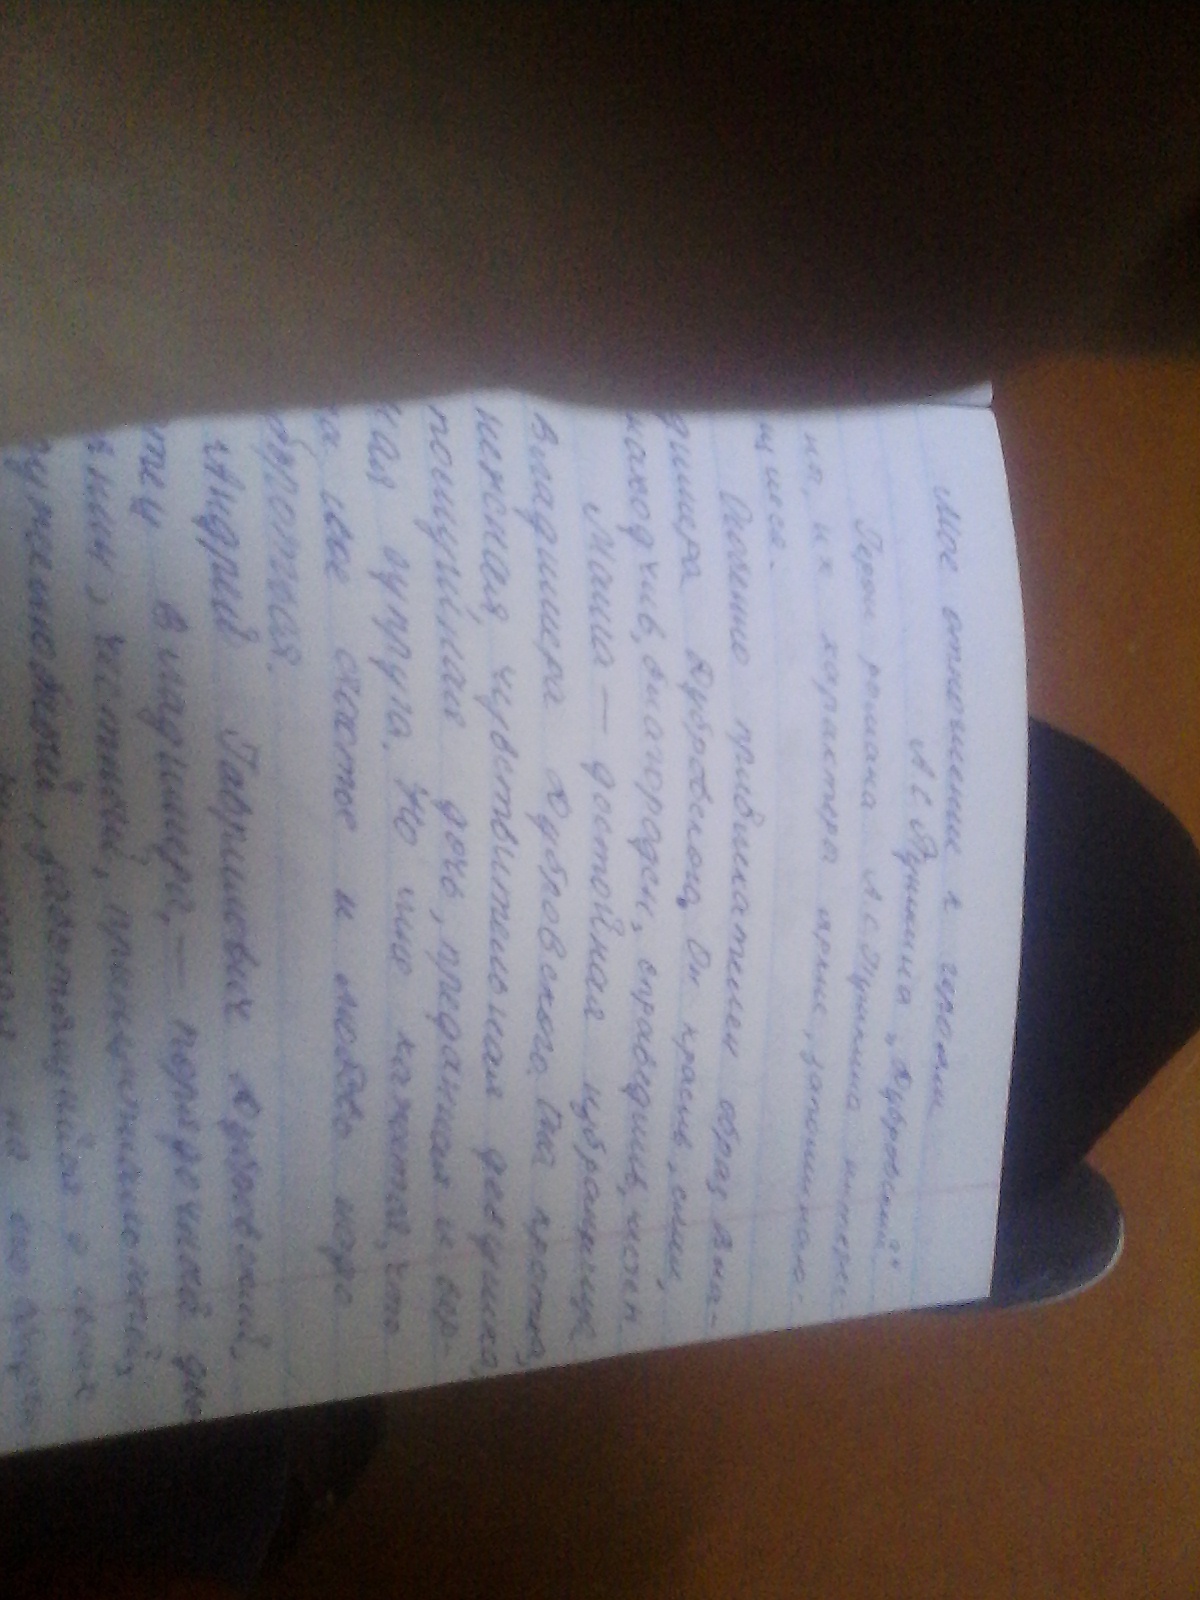 Мое отношение к героям
А С Пушкина „Дубровский"
Герои романа А С Пушкина интерес
ны, их характера яркие, запоминаю-
щиеся.
Особенно привлекателен образ Вла-
димира Дубровского. Он красив, смел,
находчив, благороден, справедлив, честен
Маша — достойная избранница
Владимира Дубровского. Она проста,
нежная, чувствительная девушка,
послушная дочь, преданная и вер-
ная супруга. Но мне кажется, что
за свое счастье и любовь надо
бороться.
Андрей Гаврилович Дубровский,
отец Владимира, — порядочный
честный, принципиальный,
заботящийся о своих